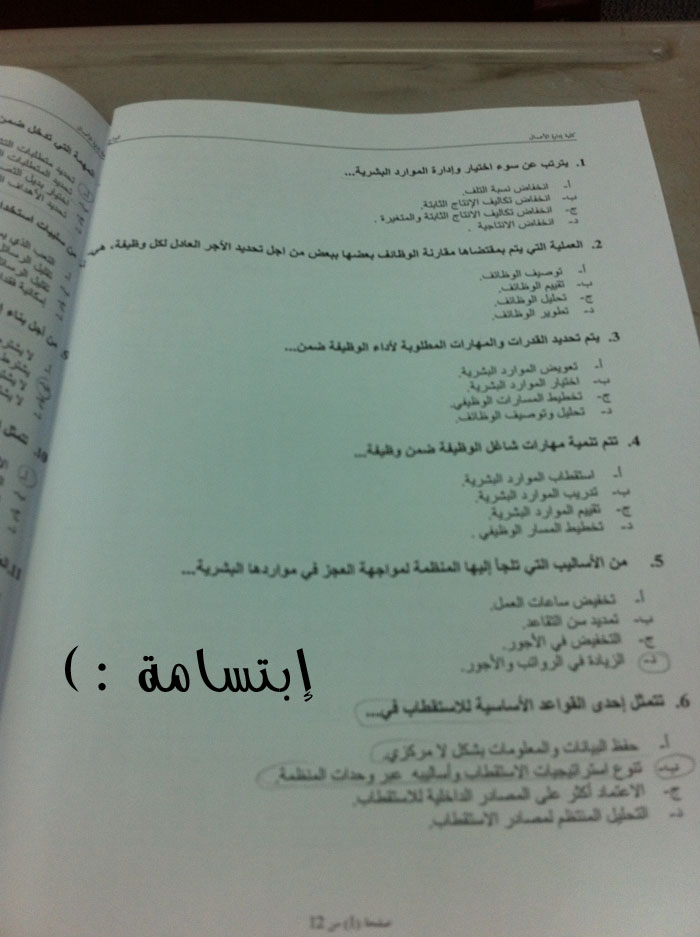 كلية إدارة الأعمال
1. يترتب عن سوء اختيار وإدارة الموارد البشرية...
أ- انخفاض نسبة التلف.
ب- انخفاض تكاليف الإنتاج الثابتة.
ج- انخفاض تكاليف الإنتاج الثابتة والمتغيرة .
د- انخفاض الانتاجية .
2. العملية التي يتم بمقتضاها مقارنة الوظائف بعضها ببعض من اجل تحديد الأجر العادل لكل وظيفة، هي
أ- توصيف الوظائف.
ب- تقييم الوظائف.
ج- تحليل الوظائف.
د- تطوير الوظائف.
3. يتم تحديد القدرات والمهارات المطلوبة لأداء الوظيفة ضمن...
أ- تعويض الموارد البشرية.
ب- اختيار الموارد البشرية.
ج- تخطيط المسارات الوظيفي.
د- تحليل وتوصيف الوظائف.
4. تتم تنمية مهارات شاغل الوظيفة ضمن وظيفة...
أ- استقطاب الموارد البشرية.
ب- تدريب الموارد البشرية.
ج- تقييم الموارد البشرية.
د- تخطيط المسار الوظيفي .
5. من الأساليب التي تلجأ إليها المنظمة لمواجهة العجز في مواردها البشرية...
أ- تخفيض ساعات العمل.
ب- تمديد سن التقاعد.
ج- التخفيض في الأجور.
د- الزيادة في الرواتب والأجور.
إبتسامة : )
6. تتمثل إحدى القواعد الأساسية للاستقطاب في...
أ- حفظ البيانات والمعلومات بشكل لا مركزي.
ب- تنوع استراتيجيات الاستقطاب وأساليبه عبر وحدات المنظمة.
ج- الاعتماد أكثر على المصادر الداخلية للاستقطاب.
د- التحليل المنتظم لمصادر الاستقطاب.
صفحة (1) من 12